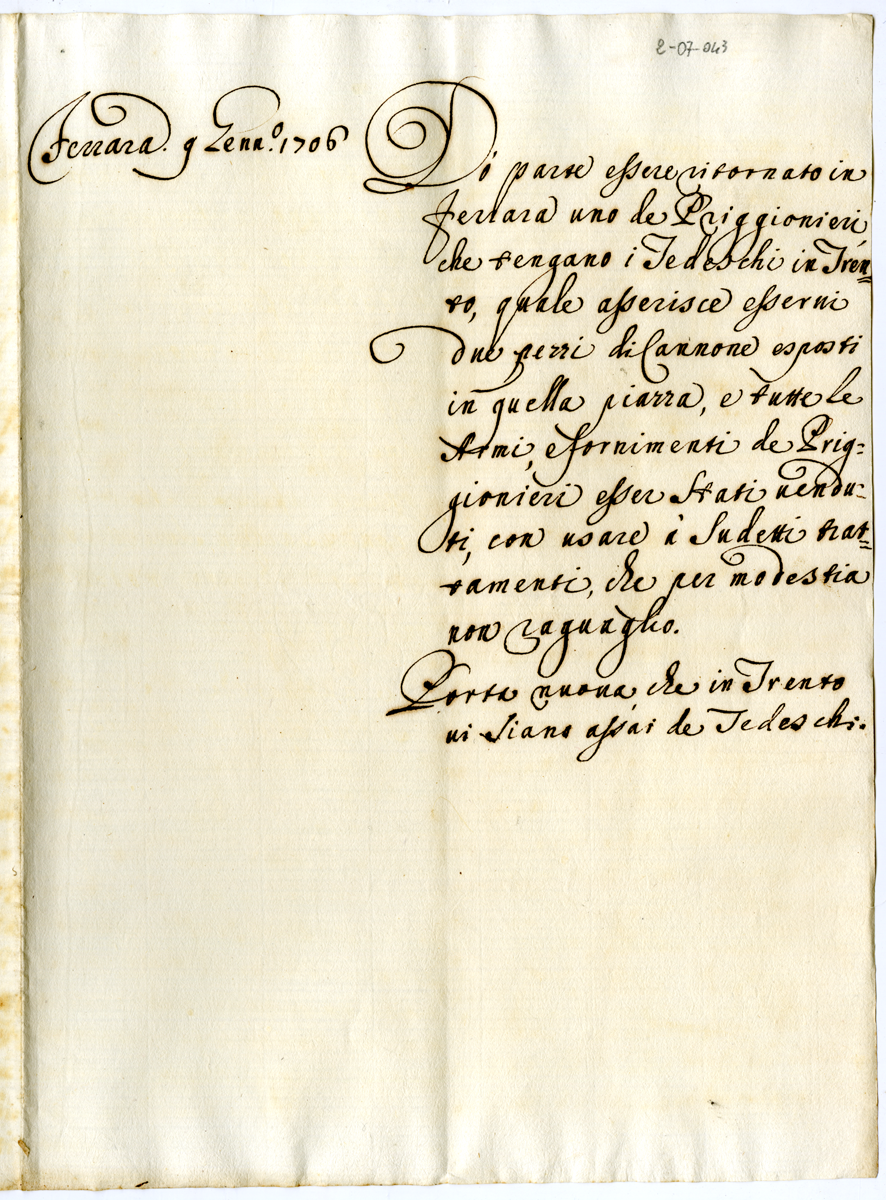 2-07-043
Ferrara. 9 Genn.º 1706
Dó parte essere ritornato in
Ferrara uno de Priggionieri
che tengano i Tedeschi in Tren=
to, quale asserisce esserui
due pezzi di Cannone esposti
in quella piazza, e tutte le
Armi, e fornimenti de Prig=
gionieri esser Stati uendu=
ti, con usare à Sudetti trat=
tamenti, che per modestia
non raguaglio.
Porta nuoua che in Trento
ui Siano assái de Tedeschi.